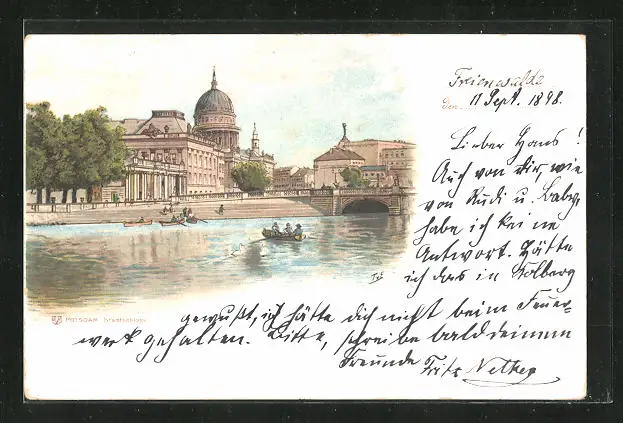 Freienwalde
den 11 Sept. 1898.
Lieber Hans!
Auch von dir, wie
von Rudi u. Baby,
habe ich keine
Antwort. Hätte
ich das in Stolberg
gewußt, ich hätte dich nicht beim Feuer-
werk gehalten. Bitte, schreibe bald deinem
Freunde Fritz
POTSDAM Stadtschloss